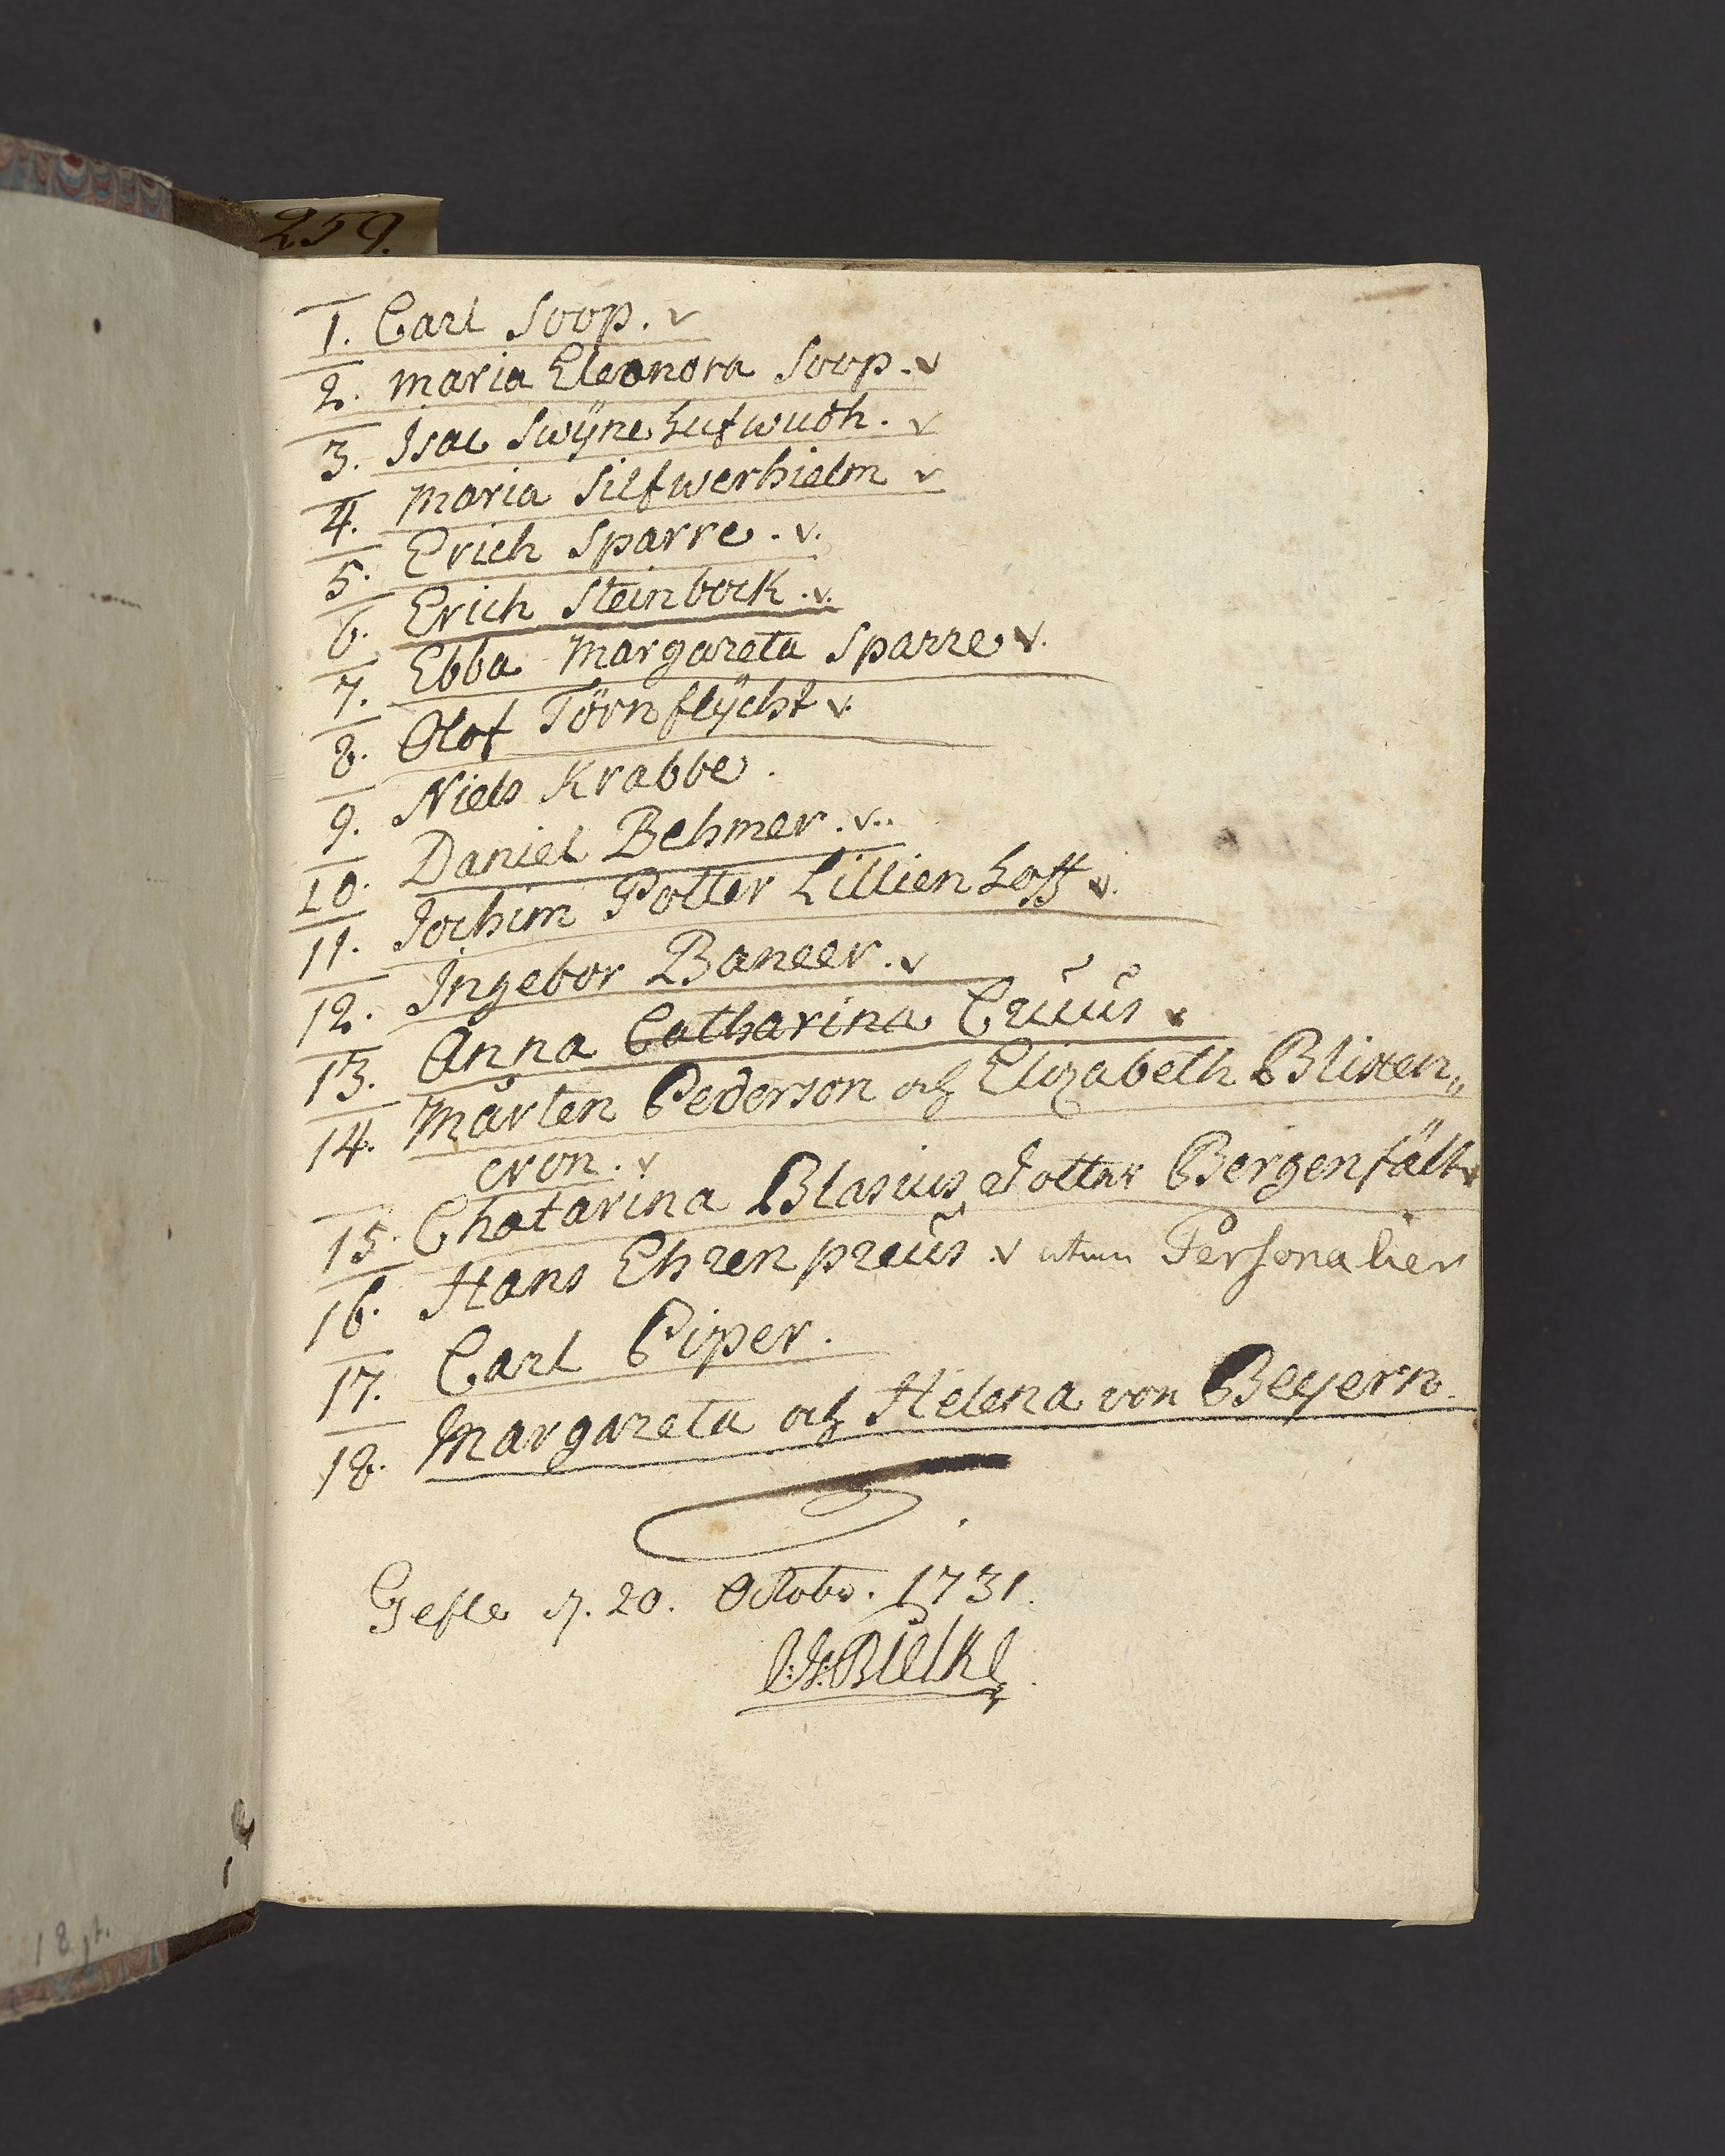 259.
1. Carl Soop. v
2. Maria Eleonora Soop. v
3. Isac Swÿnehufwudh. v
4. Maria Silfwerhielm v
5. Erich Sparre. v.
6. Erich Steinbock. v.
7. Ebba Margareta Sparre v.
8. Olof Törnflÿcht v.
9. Niels Krabbe.
10. Daniel Behmer. v..
11. Jochim Potter Lillienhoff v.
12. Ingebor Baneer. v
13. Anna Catharina Cruus v
14. Mårten Pederson och Elizabeth Blixten„
cron. v
15. Chatarina Blasius dotter Bergenfält v
16. Hans Ehrenpreus. v utan Personalier
17. Carl Piper.
18. Margareta och Helena von Beyern.
Gefle d. 20. Octobr. 1731.
Bielke
18 st.